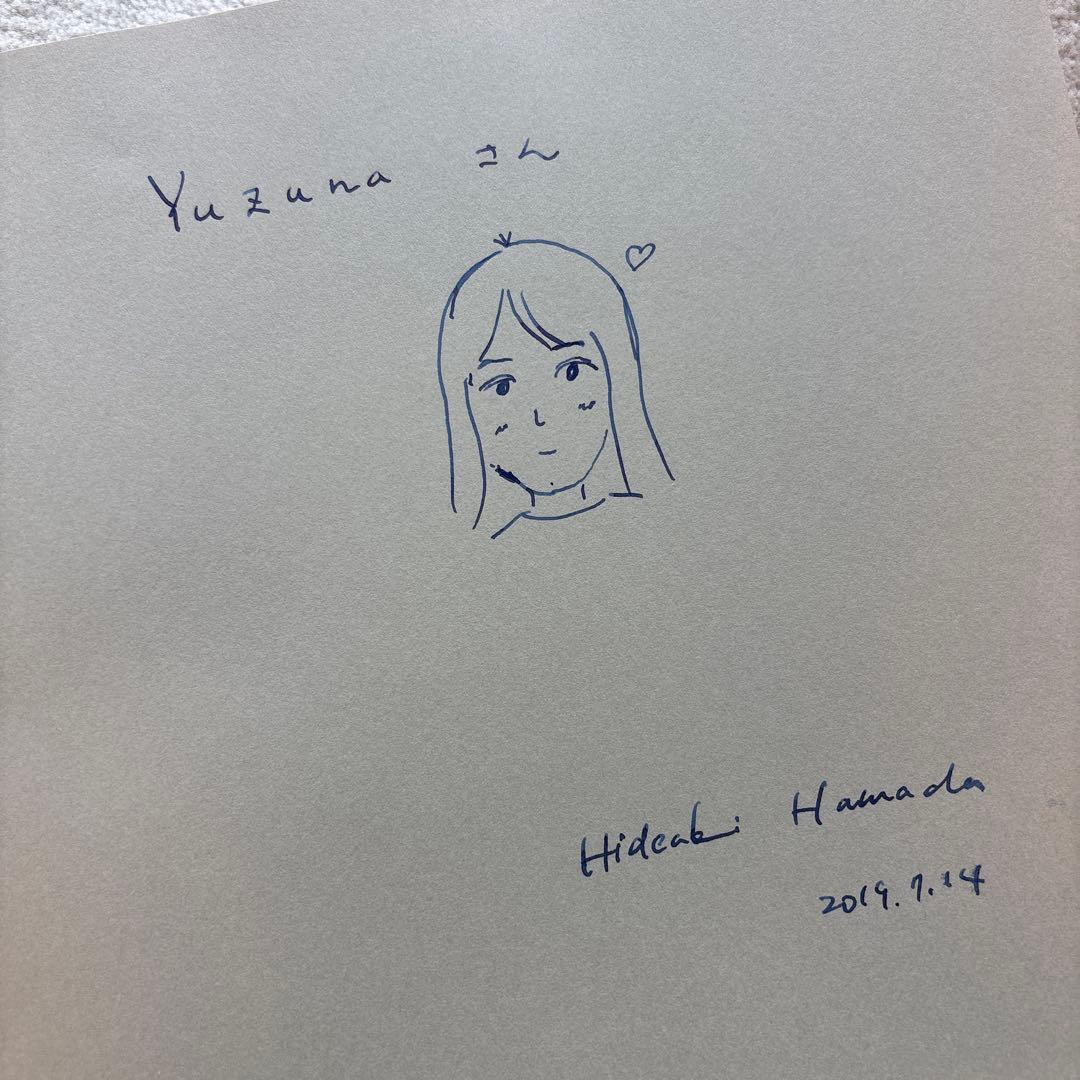 Yuzuna さん
Hideaki Hamada
2019.7.14